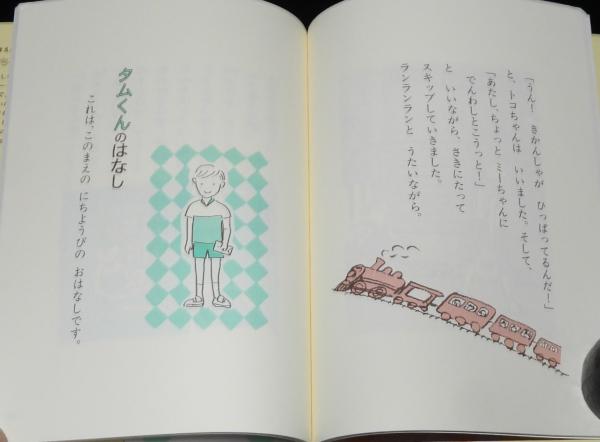 「うん！　きかんしゃが　ひっぱってるんだ！」
と、トコちゃんは　いいました。そして、
「あたし、ちょっと　ミーちゃんに
でんわしとこうっと！」
と　いいながら、さきにたって
スキップしていきました。
ランランランと　うたいながら。
タムくんのはなし
これは、このまえの　にちようびの　おはなしです。